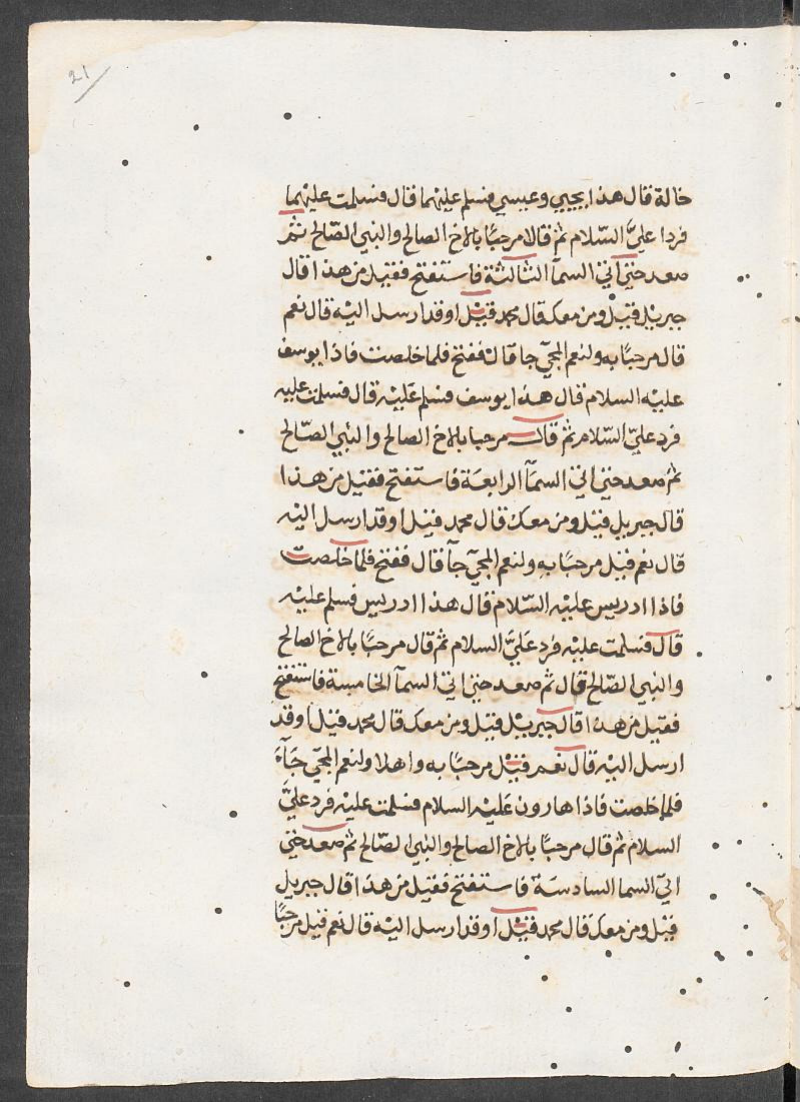 21
خالة قال هذا يحيي وعيسي فسلم عليهما قال فسلمت عليهما
فردا عليَّ السّلام ثم قالا مرحبًا بالاخ الصالح والنبي الصّالح ثم
صعد حتي اتي السمآ الثالثة فاستفتح فقيل من هذا قال
جبريل قيل ومن معك قال محمد قيل اوقد ارسل اليه قال نعم
قال مرحبًا به ولنعم المجي جا قال ففتح فلما خلصت فاذا يوسف
عليه السلام قال هذا يوسف فسلم عليه قال فسلمت عليه
فرد عليّ السّلام ثم قال مرحبا بالاخ الصالح والنبي الصّالح
ثم صعد حتي اتي السمآ الرابعة فاستفتح فقيل من هذا
قال جبريل قيل ومن معك قال محمد قيل اوقد ارسل اليه
قال نعم قيل مرحبًا به ولنعم المجي جآ قال ففتح فلما خلصت
فاذا ادريس عليه السّلام قال هذا ادريس فسلم عليه
قال فسلمت عليه فرد عَليَّ السلام ثم قال مرحبًا بالاخ الصالح
والنبي الصّالح قال ثم صعد حتي اتي السمآ الخامسة فاستفتح
فقيل من هذا قال جبريل قيل ومن معك قال محمد قيل اوقد
ارسل اليه قال نعم قيل مرحبًا به واهلا ولنعم المجي جَآءَ
فلما خلصت فاذا هارون عَليه السلام فسلمت عليه فرد عليَّ
السلام ثم قال مرحبًا بالاخ الصالح والنبي الصّالح ثم صعد حتي
اتي السما السادسة فاستفتح فقيل من هذا قال جبريل
قيل ومن معكَ قال محمد قيل اوقد ارسل اليه قال نعم قيل مرحبًا